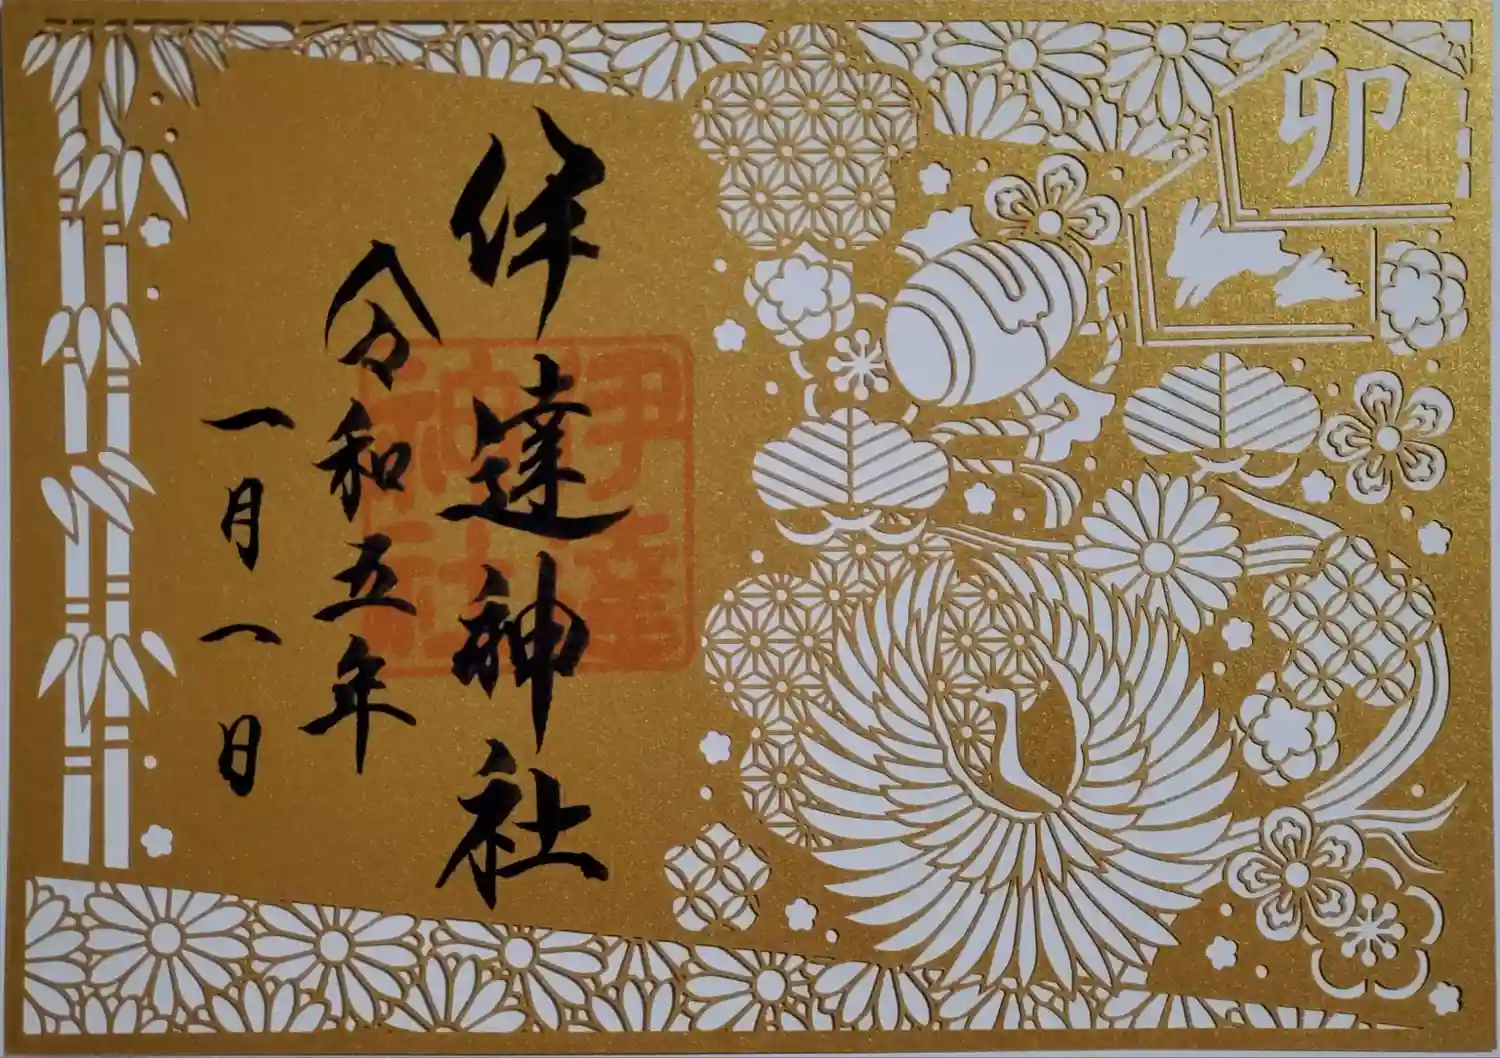 卯
伊達神社
令和五年
一月一日
伊達
神社